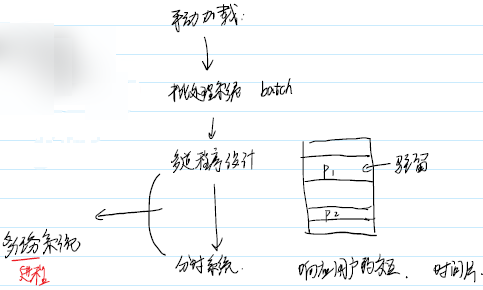 手动加载.
批处理系统 batch
多道程序设计
P1
驻留
P2
多任务系统
进程
分时系统.
响应用户的交互. 时间片.